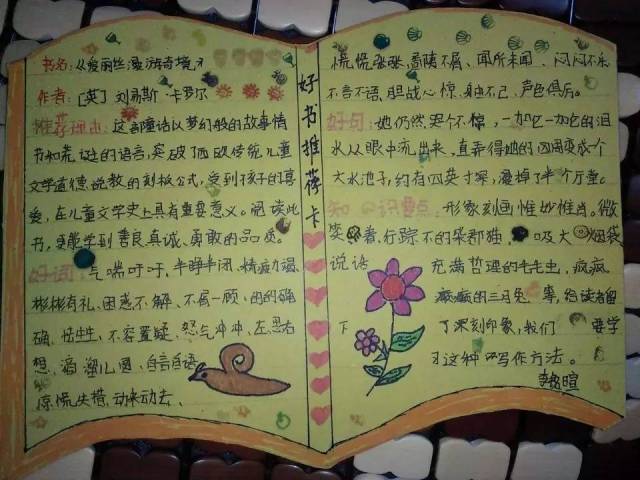 书名：《爱丽丝漫游奇境》
作者：[英] 刘易斯·卡罗尔
推荐理由：这部童话以梦幻般的故事情
节和荒诞的语言，突破了西欧传统儿童
文学道德说教的刻板公式，受到孩子的喜
爱，在儿童文学史上具有重要意义。阅读此
书，更能学到善良真诚、勇敢的品质。
好词：气喘吁吁、半睁半闭、精疲力竭、
彬彬有礼、困惑不解、不屑一顾、的的确
确、怯生生、不容置疑、怒气冲冲、左思右
想、滴溜儿圆、自言自语、
惊慌失措、动来动去、
好书推荐卡
慌慌张张、鄙陋不屑、闻所未闻、闷闷不乐
不言不语、胆战心惊、身不由己、声色俱厉。
好句：她仍然哭个不停，一加仑一加仑的泪
水从眼中流出来，直弄得她的四周变成个
大水池子，约有四英寸深，漫掉了半个厅堂。
知识重点：形象刻画惟妙惟肖。微
笑着，行踪不的柴郡猫，吸大烟袋
说话 充满哲理的毛毛虫，疯疯
癫癫的三月兔 等，给读者留
下 了深刻印象，我们 要学
习这种写作方法。